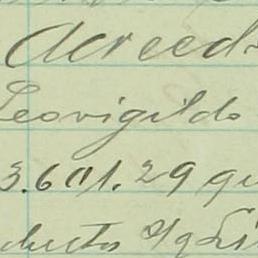 Acreed
Leovigildo
3.601.29 qu
ductos